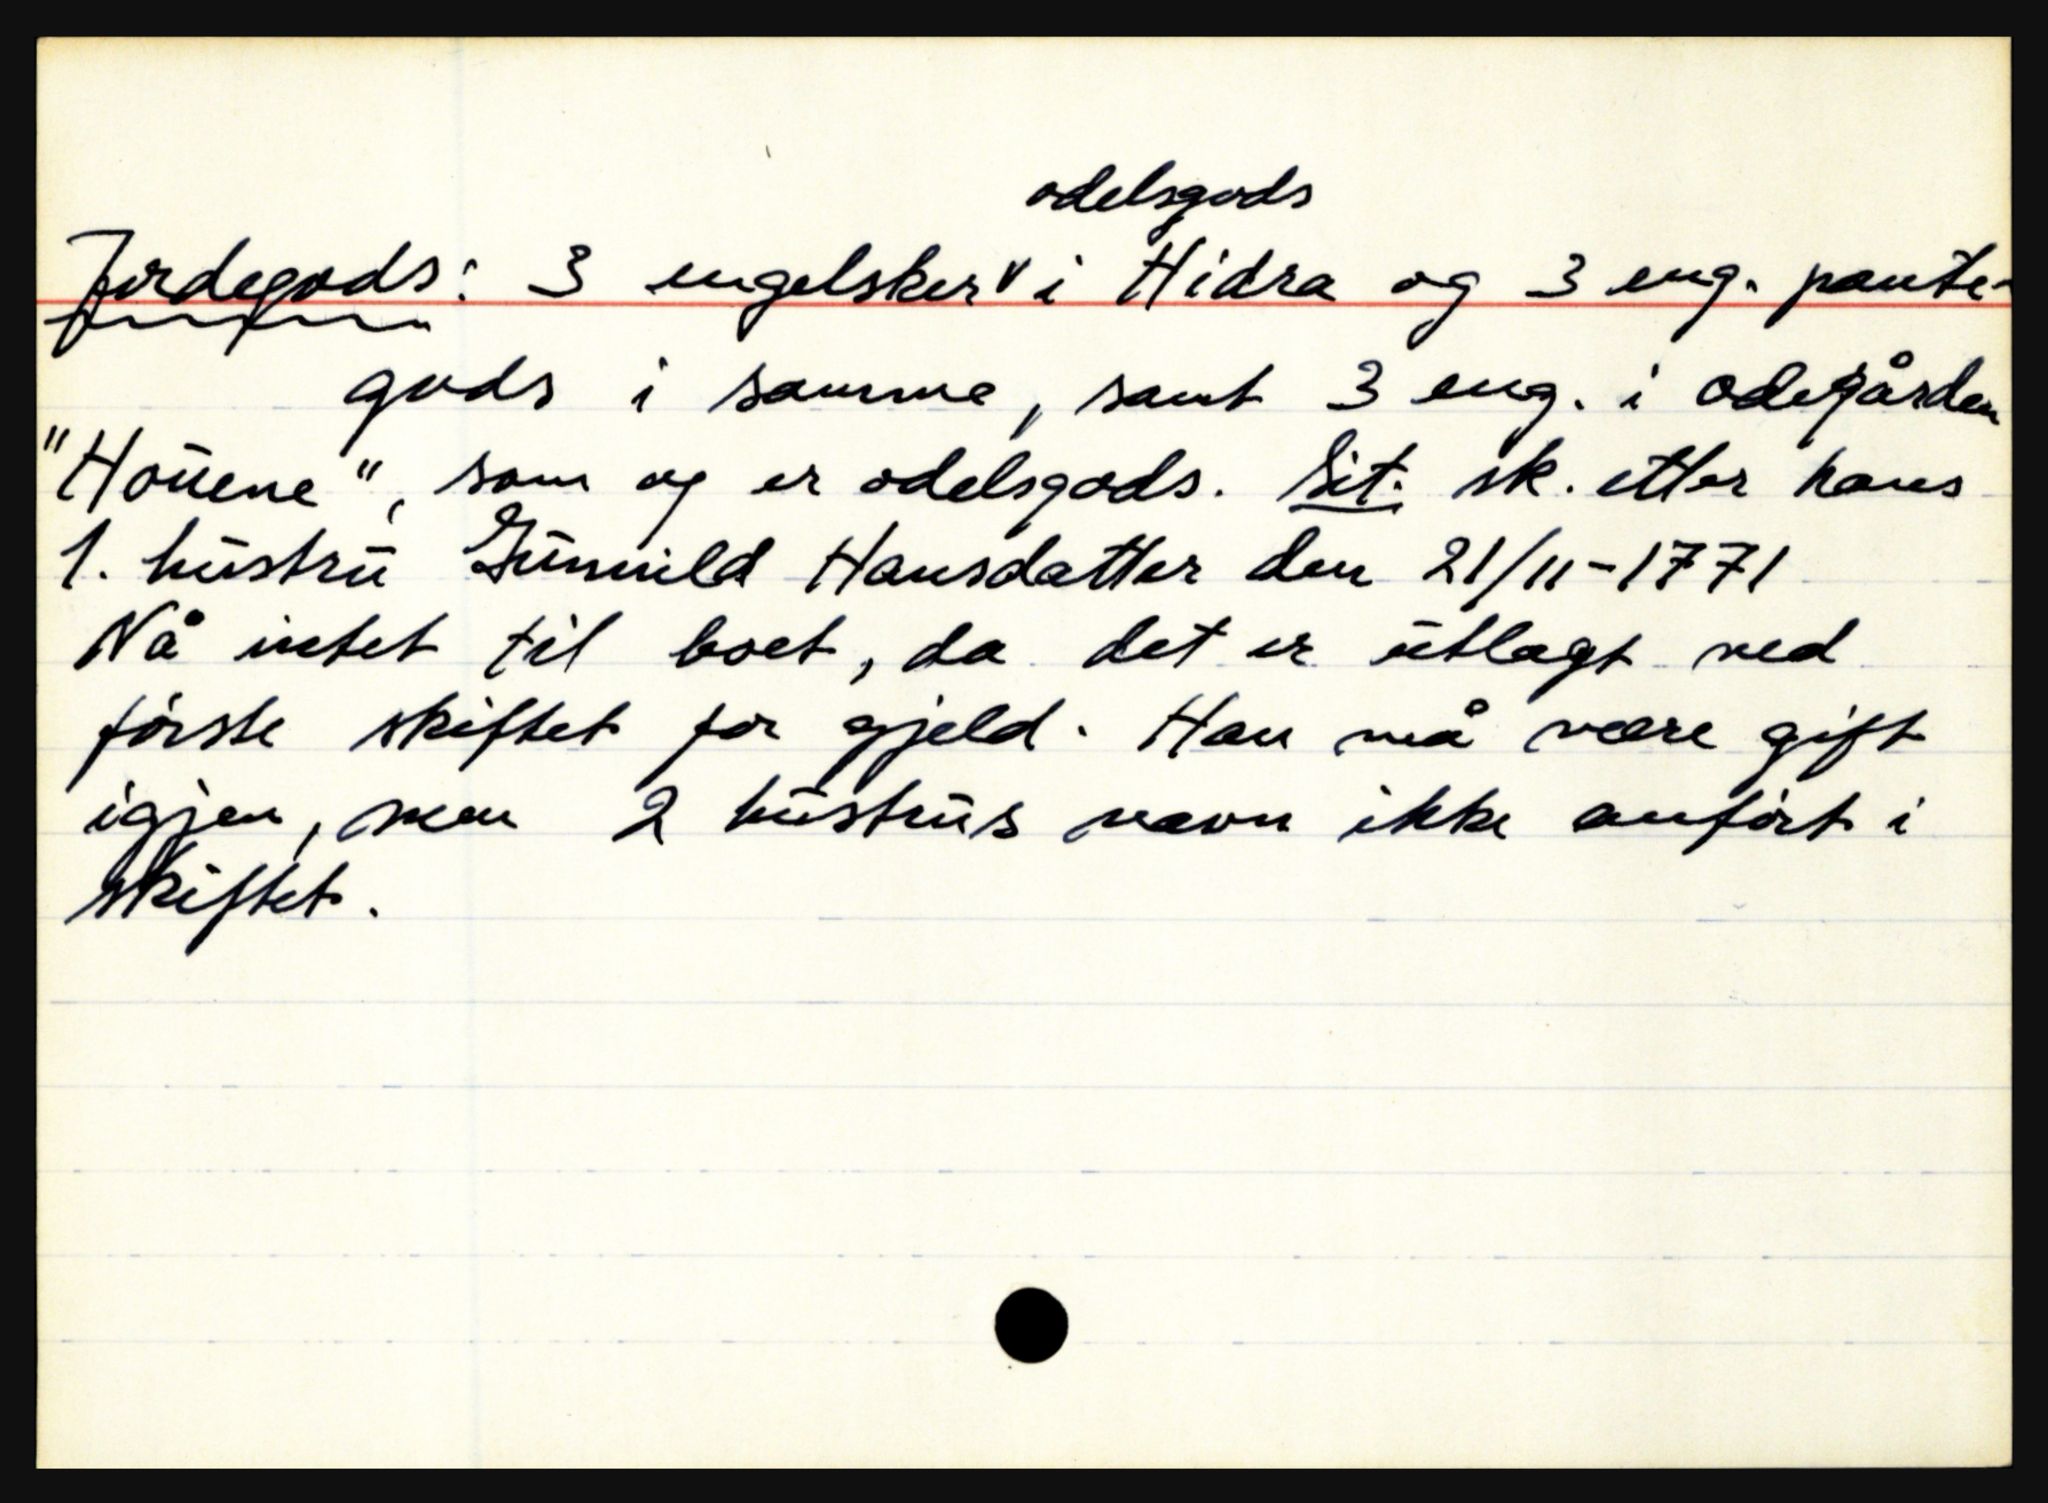 odelsgods
Jordegods: 3 engelsker v i Hidra og 3 eng. pante-
gods i samme, samt 3 eng. i ödegården
"Houene", som og er odelsgods. Sit. sk. etter hans
1. hustru Gunnild Hansdatter den 21/11-1771
Nå intet til boet, da det er utlagt ved
förste skiftet for gjeld. Han må være gift
igjen, men 2 hustrus navn ikke anfört i
skiftet.